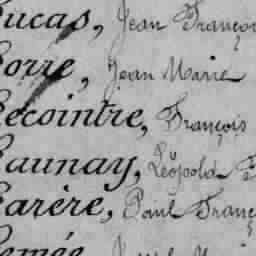 Lucas, Jean François
Lorre, Jean Marie
Lecointre, François
Launay, Léopold
Larère, Paul Franç
Lemée,